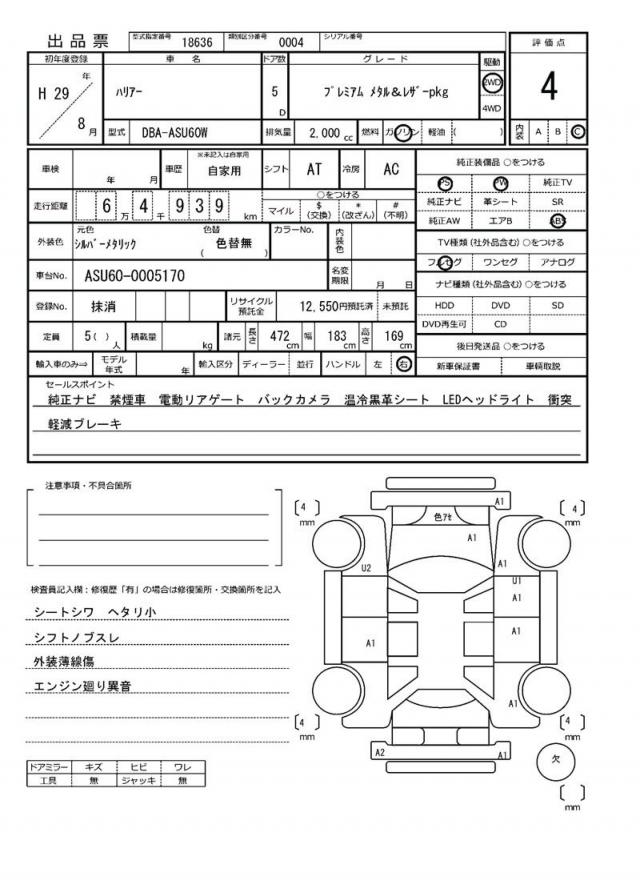 出品票 型式指定番号 18636 類別区分番号 0004 シリアル番号
初年度登録 車 名 ドア数 グレード 駆動 評価点
H 29 年 8 月 ハリアー 5 D プレミアム メタル&レザーpkg 2WD 4WD 4
型式 DBA-ASU60W 排気量 2,000 cc 燃料 ガソリン 軽油 ( ) 内装 A B C
車検 年 月 車歴 ※未記入は自家用 自家用 シフト AT 冷房 AC
走行距離 6 万 4 千 9 3 9 km ○をつける マイル $ (交換) * (改ざん) # (不明)
外装色 元色 シルバーメタリック 色替 ( 色替無 ) カラーNo. 内装色
車台No. ASU60-0005170 名変期限 月 日
登録No. 抹消 リサイクル預託金 12,550円預託済 未預託
定員 5( ) 人 積載量 kg 諸元 長さ 472 cm 幅 183 cm 高さ 169 cm
輸入車のみ⇒ モデル年式 年 輸入区分 ディーラー 並行 ハンドル 左 右
純正装備品 ○をつける
PS PW 純正TV
純正ナビ 革シート SR
純正AW エアB ABS
TV種類(社外品含む)○をつける
フルセグ ワンセグ アナログ
ナビ種類(社外品含む)○をつける
HDD DVD SD
DVD再生可 CD
後日発送品 ○をつける
新車保証書 車輌取説
セールスポイント
純正ナビ 禁煙車 電動リアゲート バックカメラ 温冷黒革シート LEDヘッドライト 衝突
軽減ブレーキ
注意事項・不具合箇所
検査員記入欄:修復歴「有」の場合は修復箇所・交換箇所を記入
シートシワ ヘタリ小
シフトノブスレ
外装薄線傷
エンジン廻り異音
ドアミラー キズ ヒビ ワレ
工具 無 ジャッキ 無
A1
[ 4 ] mm 色アセ [ 4 ] mm
A1
U2 A1
U1
A1
A1 A1
A1
[ 4 ] mm [ 4 ] mm
A2 A1
欠
[ ] mm